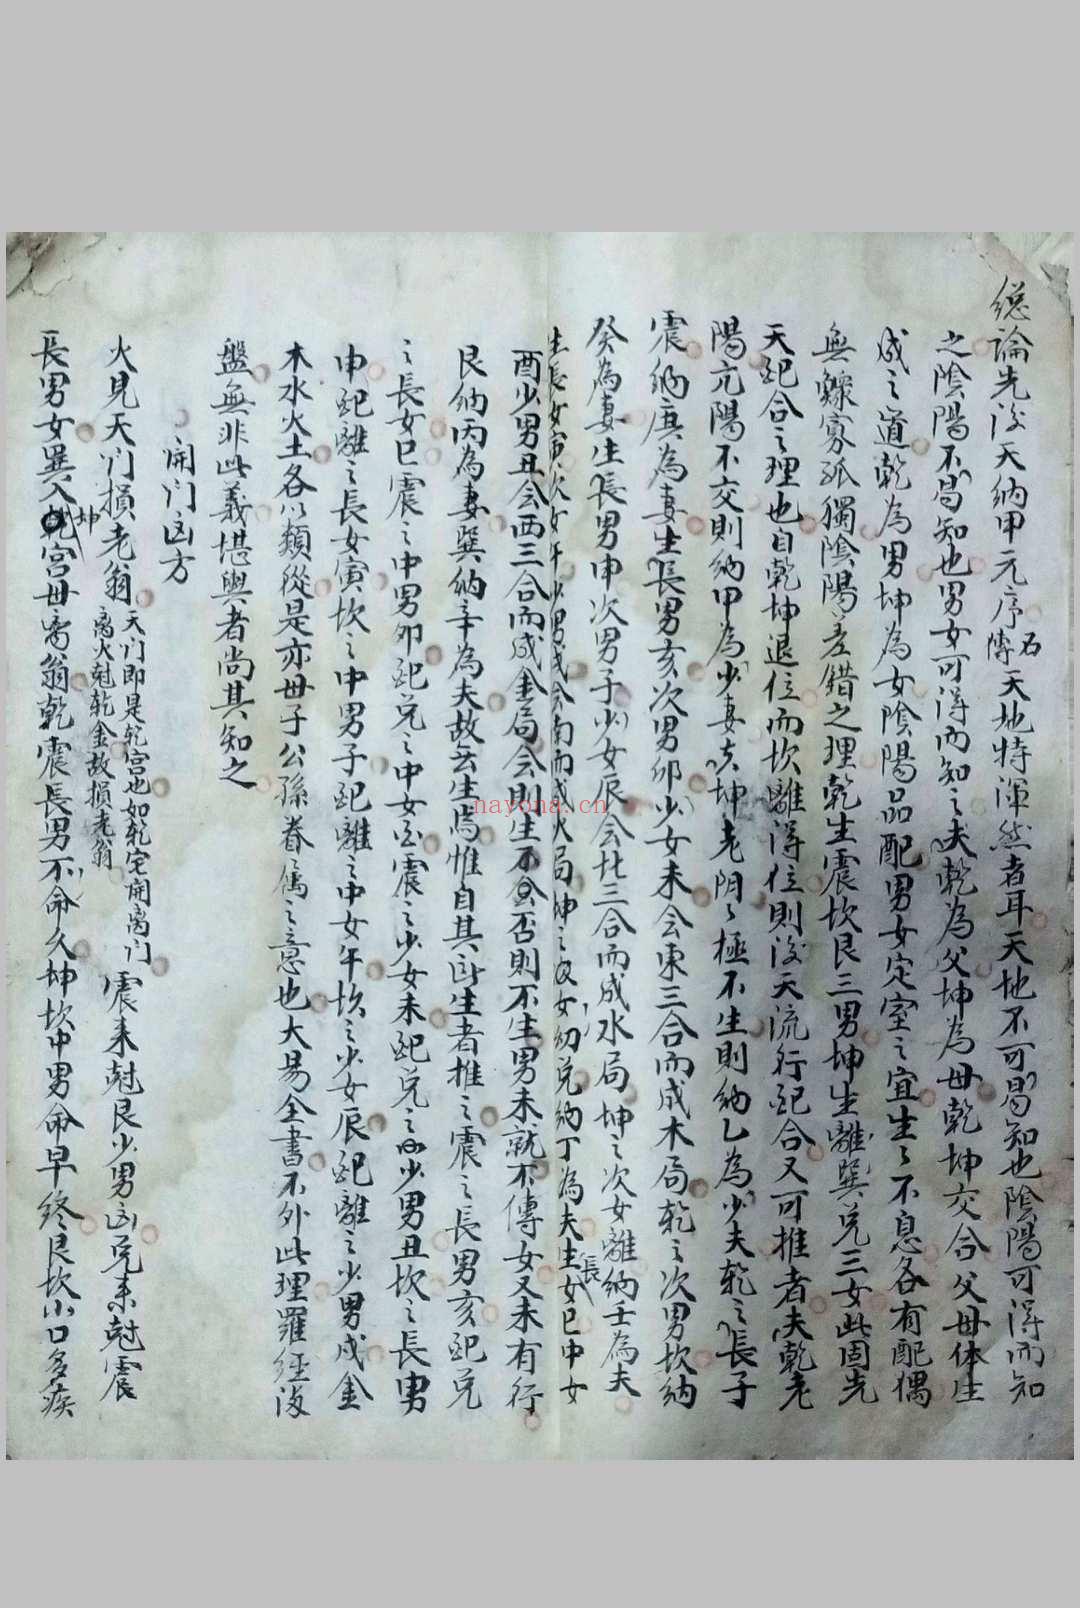 総論先後天納甲元序 石傳 天地特渾然者耳天地不可易知也陰陽可得而知
之陰陽不易知也男女可得而知之夫乾為父坤為母乾坤交合父母体生
成之道乾為男坤為女陰陽品配男女定室之宜生々不息各有配偶
無鰥寡孤獨陰陽差錯之理乾生震坎艮三男坤生離巽兌三女此固先
天配合之理也自乾坤退位而坎離得位則後天流行配合又可推者夫乾老
陽亢陽不交則納甲為少妻夫坤老阴々極不生則納乙為少夫乾之長子
震納庚為妻生長男亥次男卯少女未会東三合而成木局乾之次男坎納
癸為妻生長男申次男子少女辰会北三合而成水局坤之次女離納壬為夫
生長女寅次女午少男戌会南而成火局坤之女幼兌納丁為夫生長女巳中女
酉少男丑会西三合而成金局会則生不会否則不生男未就不傳女又未有行
艮納丙為妻巽納辛為夫故云生焉惟自其所生者推之震之長男亥配兌
之長女巳震之中男卯配兌之中女酉震之少女未配兌之少男丑坎之長男
申配離之長女寅坎之中男子配離之中女午坎之少女辰配離之少男戌金
木水火土各以類從是亦母子公孫眷属之意也大易全書不外此理羅經後
盤無非此義堪輿者尚其知之
開门凶方
火見天门損老翁 天门即是乾宫也如乾宅開离门 离火尅乾金故損老翁 震来尅艮少男凶兌来尅震
長男女異入坤宮母离翁乾震長男不命久坤坎中男命早终艮坎小口多疾
nayona.cn